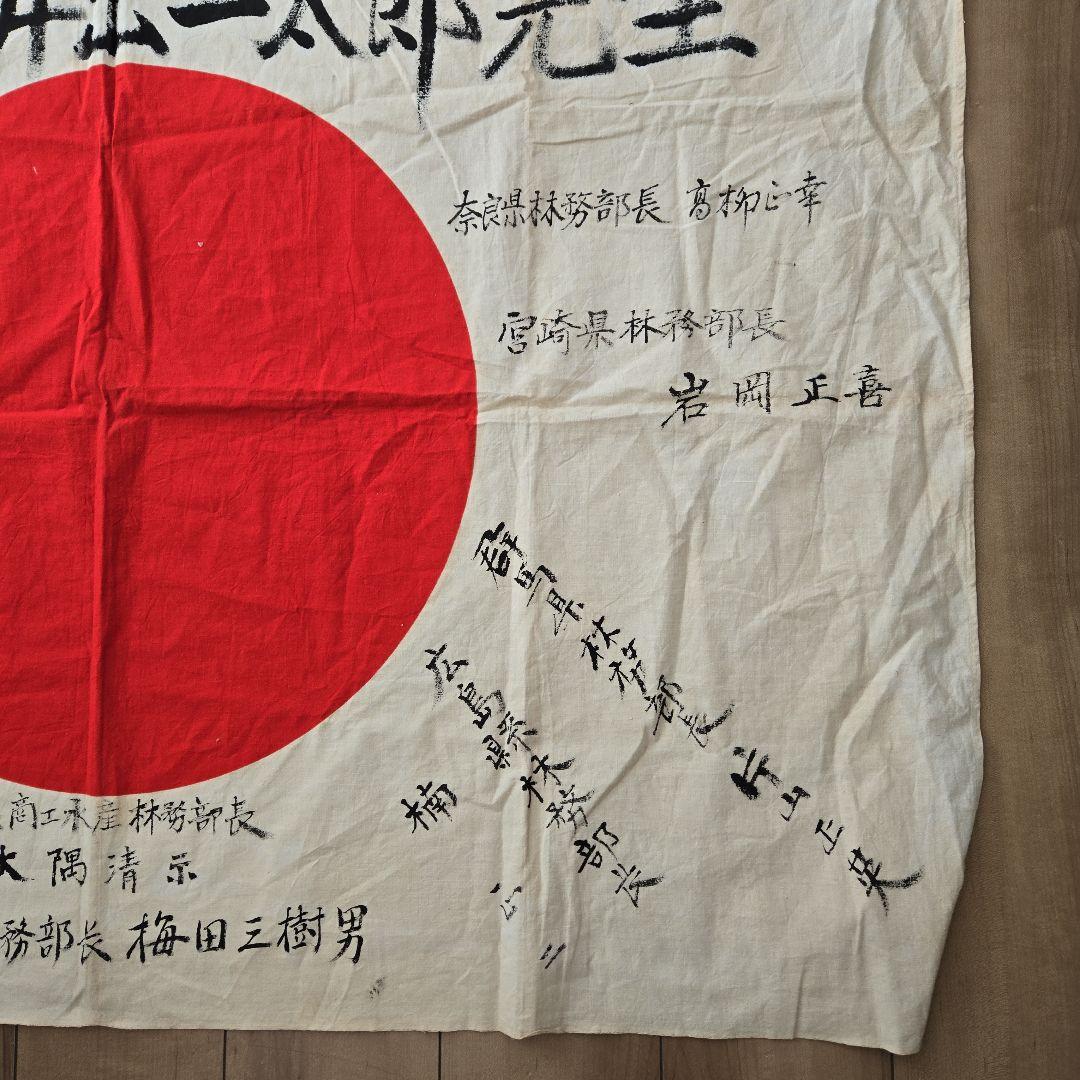 一太郎先生
奈良県林務部長 高柳正幸
宮崎県林務部長
岩岡正喜
群馬県林務部長 片山正英
広島県林務部長
楠 正二
商工水産林務部長
大隅清示
務部長 梅田三樹男